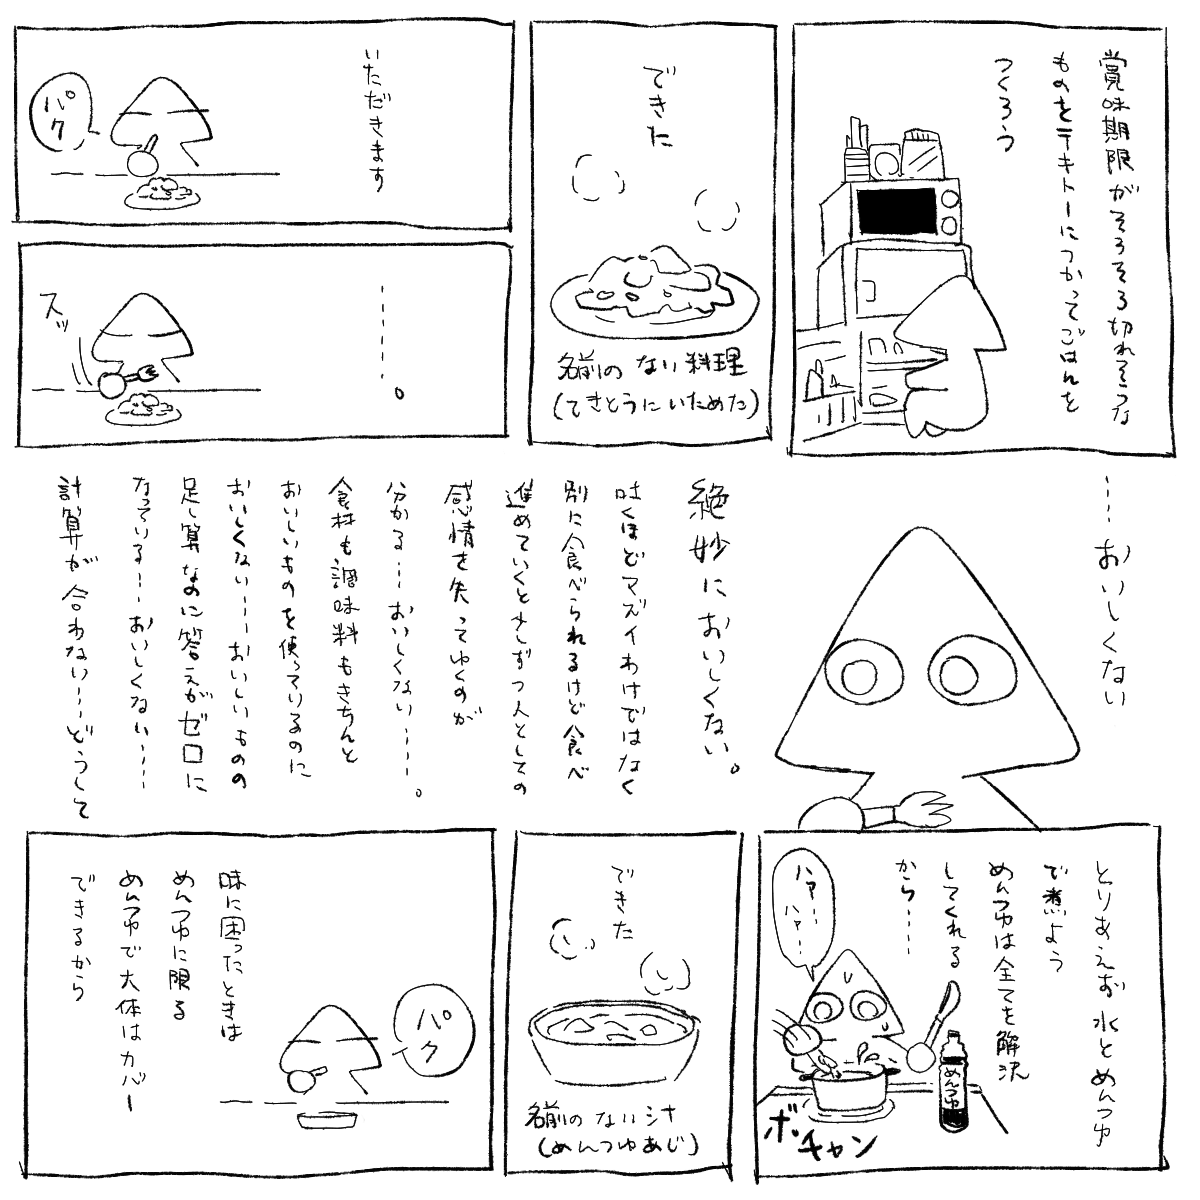 賞味期限がそろそろ切れそうな
ものをテキトーにつかってごはんを
つくろう
できた
名前のない料理
(てきとうにいためた)
いただきます
パク
‥‥‥。
スッ
‥‥おいしくない
絶妙においしくない。
吐くほどマズイわけではなく
別に食べられるけど食べ
進めていくと少しずつ人としての
感情を失ってゆくのが
分かる…おいしくない‥‥。
食材も調味料もきちんと
おいしいものを使っているのに
おいしくない‥‥おいしいものの
足し算なのに答えがゼロに
なっている…おいしくない‥‥
計算が合わない‥‥どうして
とりあえず水とめんつゆ
で煮よう
めんつゆは全てを解決
してくれる
から‥‥
ハァ…
ハァ…
めんつゆ
ボ
チャン
できた
名前のない汁
(めんつゆあじ)
パク
味に困ったときは
めんつゆに限る
めんつゆで大体はカバー
できるから